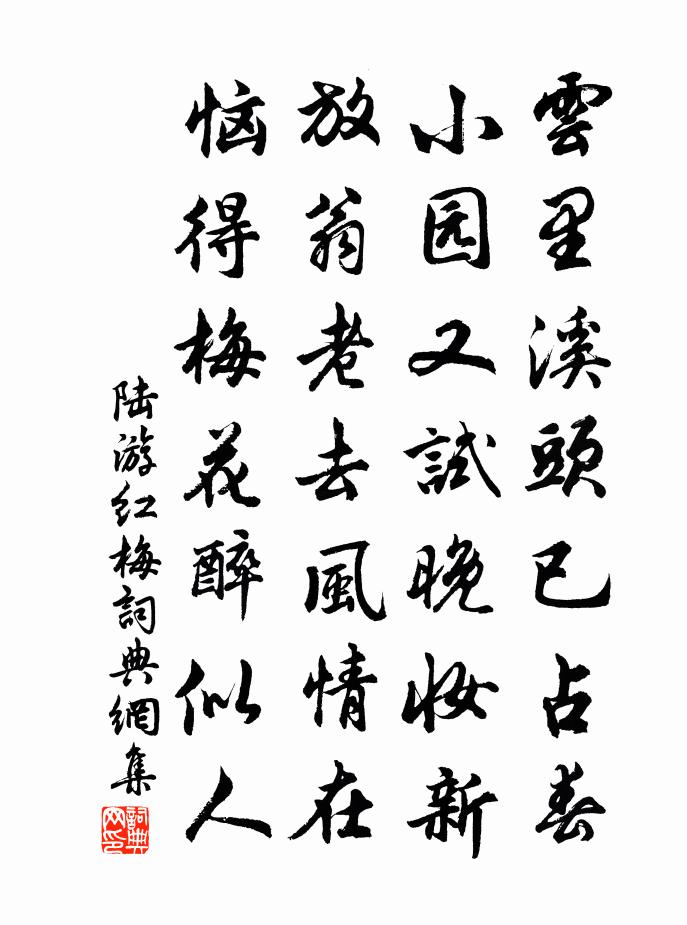 雲里溪頭已占春
小园又試晚妆新
放翁老去風情在
恼得梅花醉似人
陆游红梅詞典網集
詞典网印